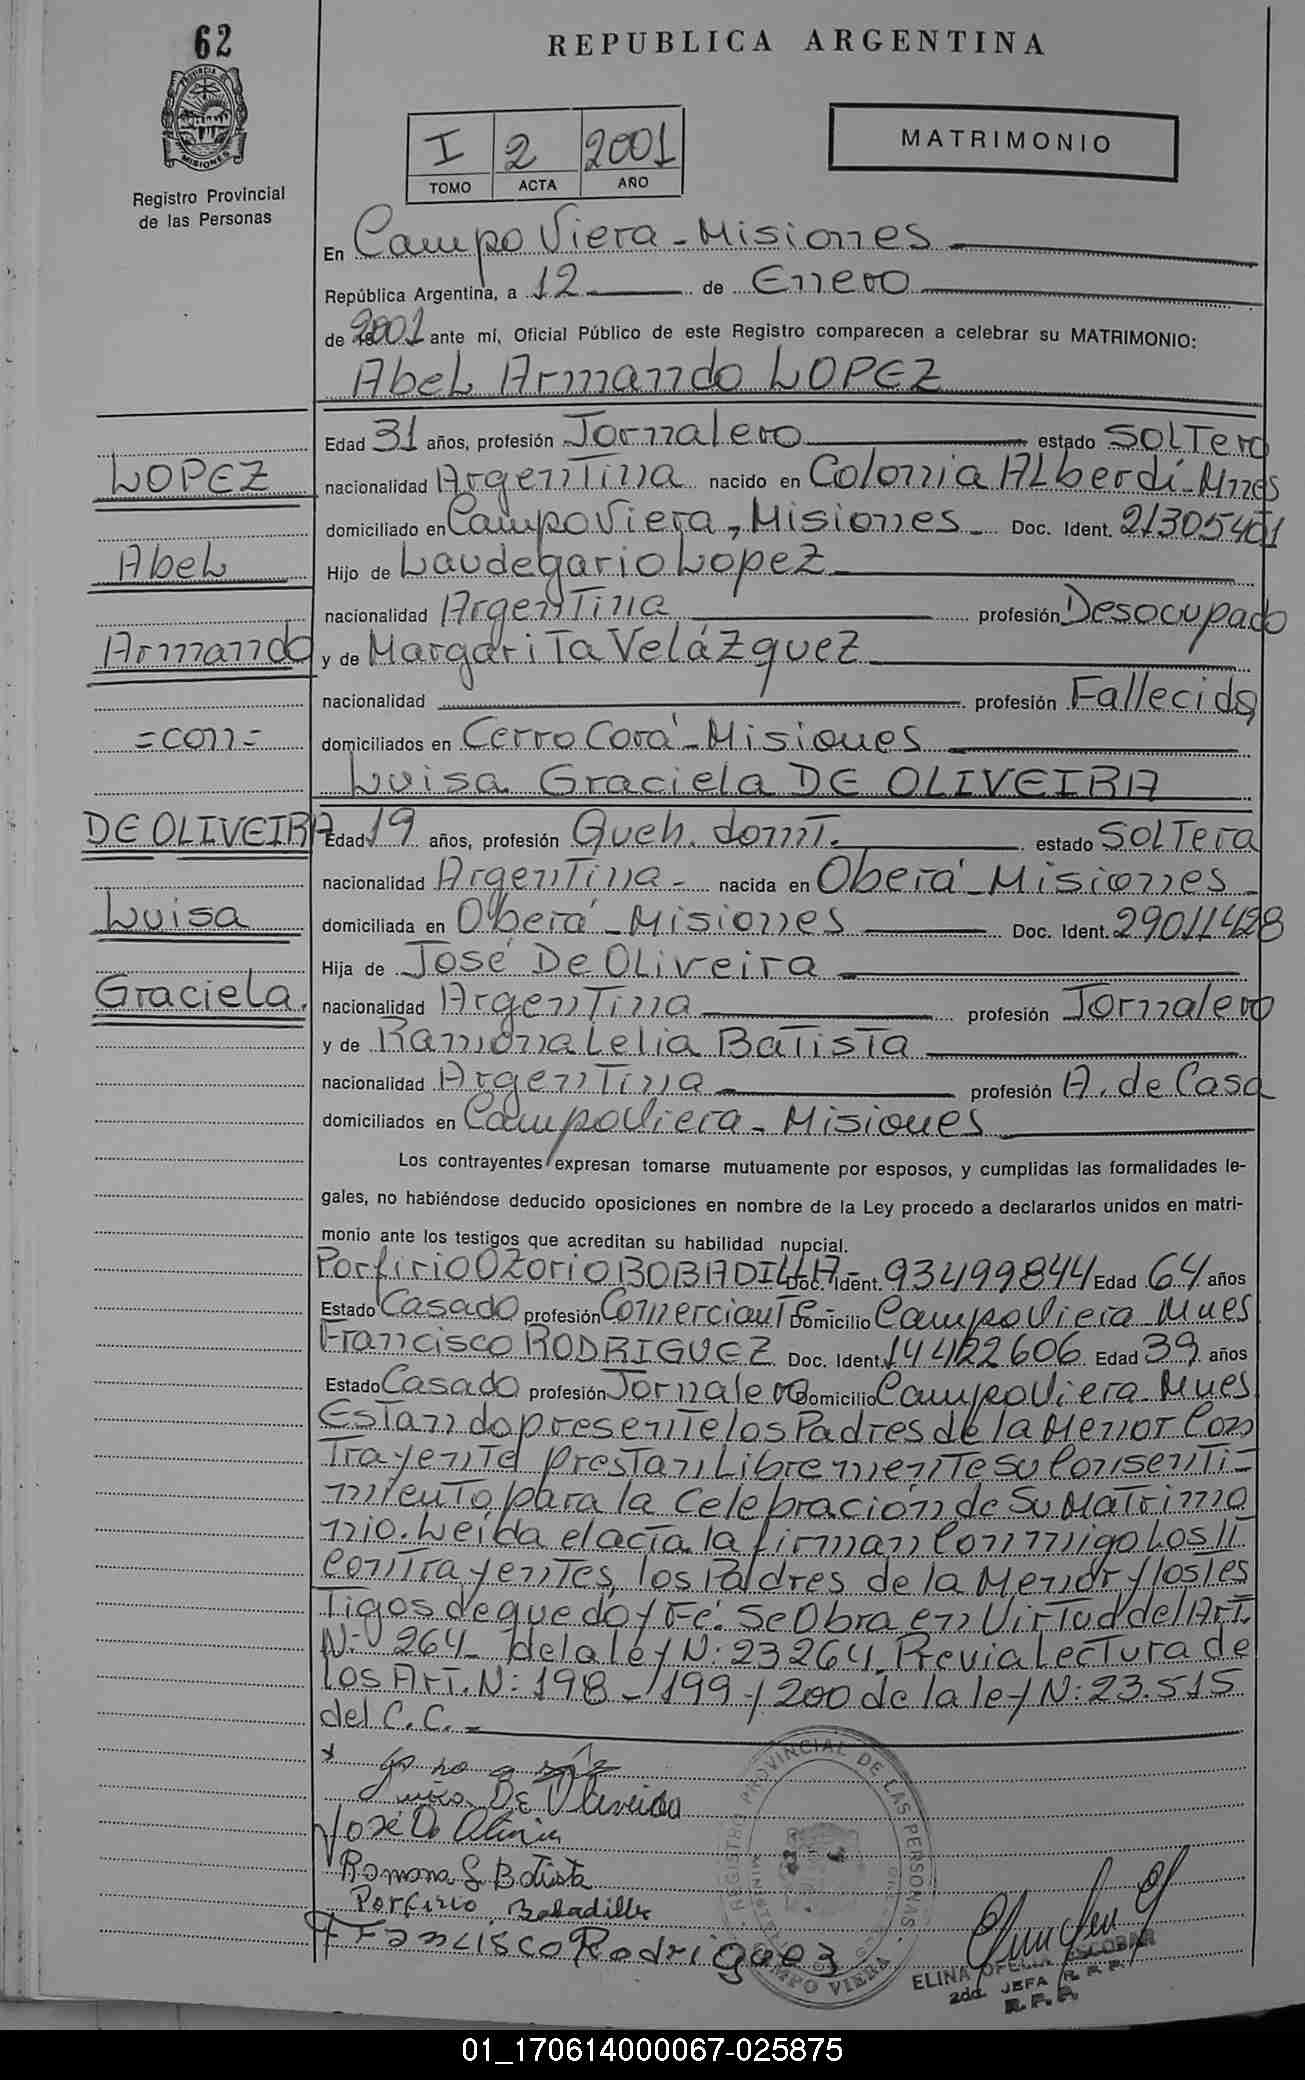 62
REPUBLICA ARGENTINA
PROVINCIA DE MISIONES
Registro Provincial
de las Personas
I 2 2001
TOMO ACTA AÑO
MATRIMONIO
En Campo Viera - Misiones
República Argentina, a 12 de Enero
de 2001 ante mí, Oficial Público de este Registro comparecen a celebrar su MATRIMONIO:
Abel Armando LOPEZ
Edad 31 años, profesión Jornalero estado Soltero
LOPEZ
nacionalidad Argentina nacido en Colonia Alberdí - Mnes
domiciliado en Campo Viera, Misiones - Doc. Ident. 21305401
Abel
Hijo de Laudegario Lopez
nacionalidad Argentina profesión Desocupado
Armando
y de Margarita Velázquez
nacionalidad profesión Fallecida
=con=
domiciliados en Cerro Corá - Misiones
Luisa Graciela DE OLIVEIRA
DE OLIVEIRA
Edad 19 años, profesión Queh. domt. estado Soltera
nacionalidad Argentina - nacida en Oberá - Misiones -
Luisa
domiciliada en Oberá - Misiones Doc. Ident. 29011428
Hija de José De Oliveira
Graciela.
nacionalidad Argentina profesión Jornalero
y de Ramona Lelia Batista
nacionalidad Argentina profesión A. de Casa
domiciliados en Campo Viera - Misiones
Los contrayentes expresan tomarse mutuamente por esposos, y cumplidas las formalidades le-
gales, no habiéndose deducido oposiciones en nombre de la Ley procedo a declararlos unidos en matri-
monio ante los testigos que acreditan su habilidad nupcial.
Porfirio Ozorio BOBADILLA - Doc. Ident. 93499844 Edad 64 años
Estado Casado profesión Comerciante - Domicilio Campo Viera - Mnes
Francisco RODRIGUEZ Doc. Ident. 14422606 Edad 39 años
Estado Casado profesión Jornalero Domicilio Campo Viera - Mnes
Estando presente los Padres de la Menor Con
trayente prestan Libremente su Consenti-
miento para la Celebración de su Matrimo
nio. Leída el acta la firman Conmigo Los
Contrayentes, los Padres de la Menor y los Tes
Tigos de que doy Fé. Se Obra en Virtud del Art.
N: 264 - de la ley N: 23264. Previa Lectura de
los Art. N: 198 - 199 y 200 de la ley N: 23.515
del C.C. -
Luisa De Oliveira
José D. Oliveira
Ramona L Batista
Porfirio Bobadilla
Francisco Rodriguez
REGISTRO PROVINCIAL DE LAS PERSONAS
CAMPO VIERA
ELINA OFELIA ESCOBAR
2da. JEFA R. P. P.
R. P. P.
01_170614000067-025875